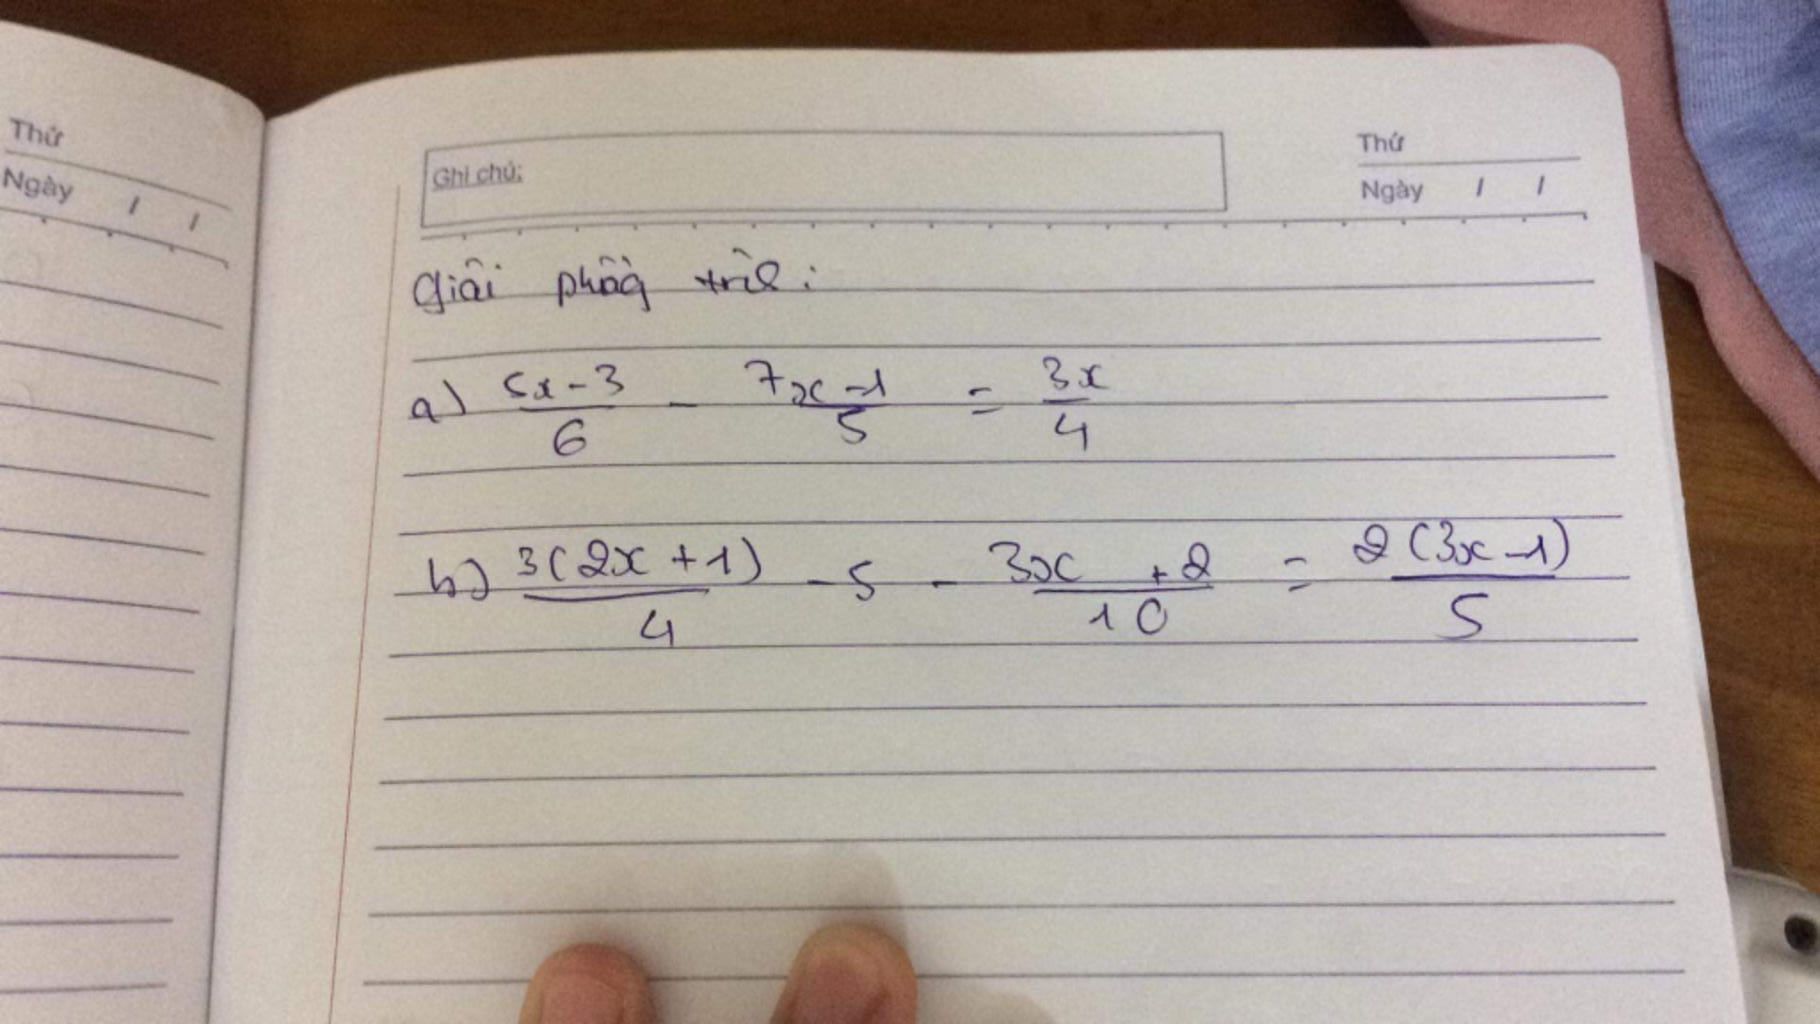 Thứ
Ngày / /
Ghi chú:
Thứ
Ngày / /
Giải phồg trìl:
a) (5x-3)/6 - (7x-1)/5 = 3x/4
b) 3(2x+1)/4 - 5 - (3x+2)/10 = 2(3x-1)/5